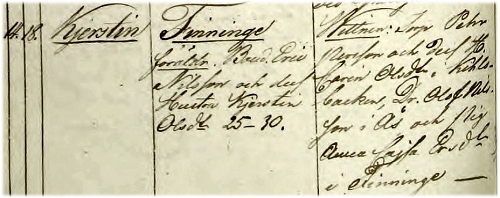 14. 18. Kjerstin
Finninge
föräldr. Bond. Eric
Nilsson och des
Hustru Kjerstin
Olsdr 25-30.
Wittnen: Torp. Pehr
Persson och des H.
Karen Olsdr,
backen, Dr. Olof Nils-
son i Ås och Pig.
Anna Cajsa Ersdr
i Finninge —